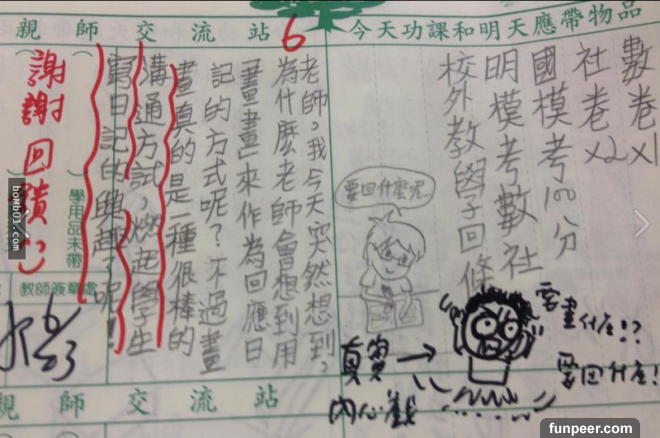 親師交流站
今天功課和明天應帶物品
6
數卷x1
社卷x2
國模考100分
明模考數社
校外教學回條
老師,我今天突然想到,
為什麼老師會想到用
「畫畫」來作為回應日
記的方式呢?不過畫
畫真的是一種很棒的
溝通方試,燃起學生
寫日記的興趣了呢!
謝謝回饋:)
學用品未帶
教師簽章處
要回什麼呢..
要畫什麼!?
要回什麼!
真實
內心戲
親師交流站
bomb01.com
funpeer.com